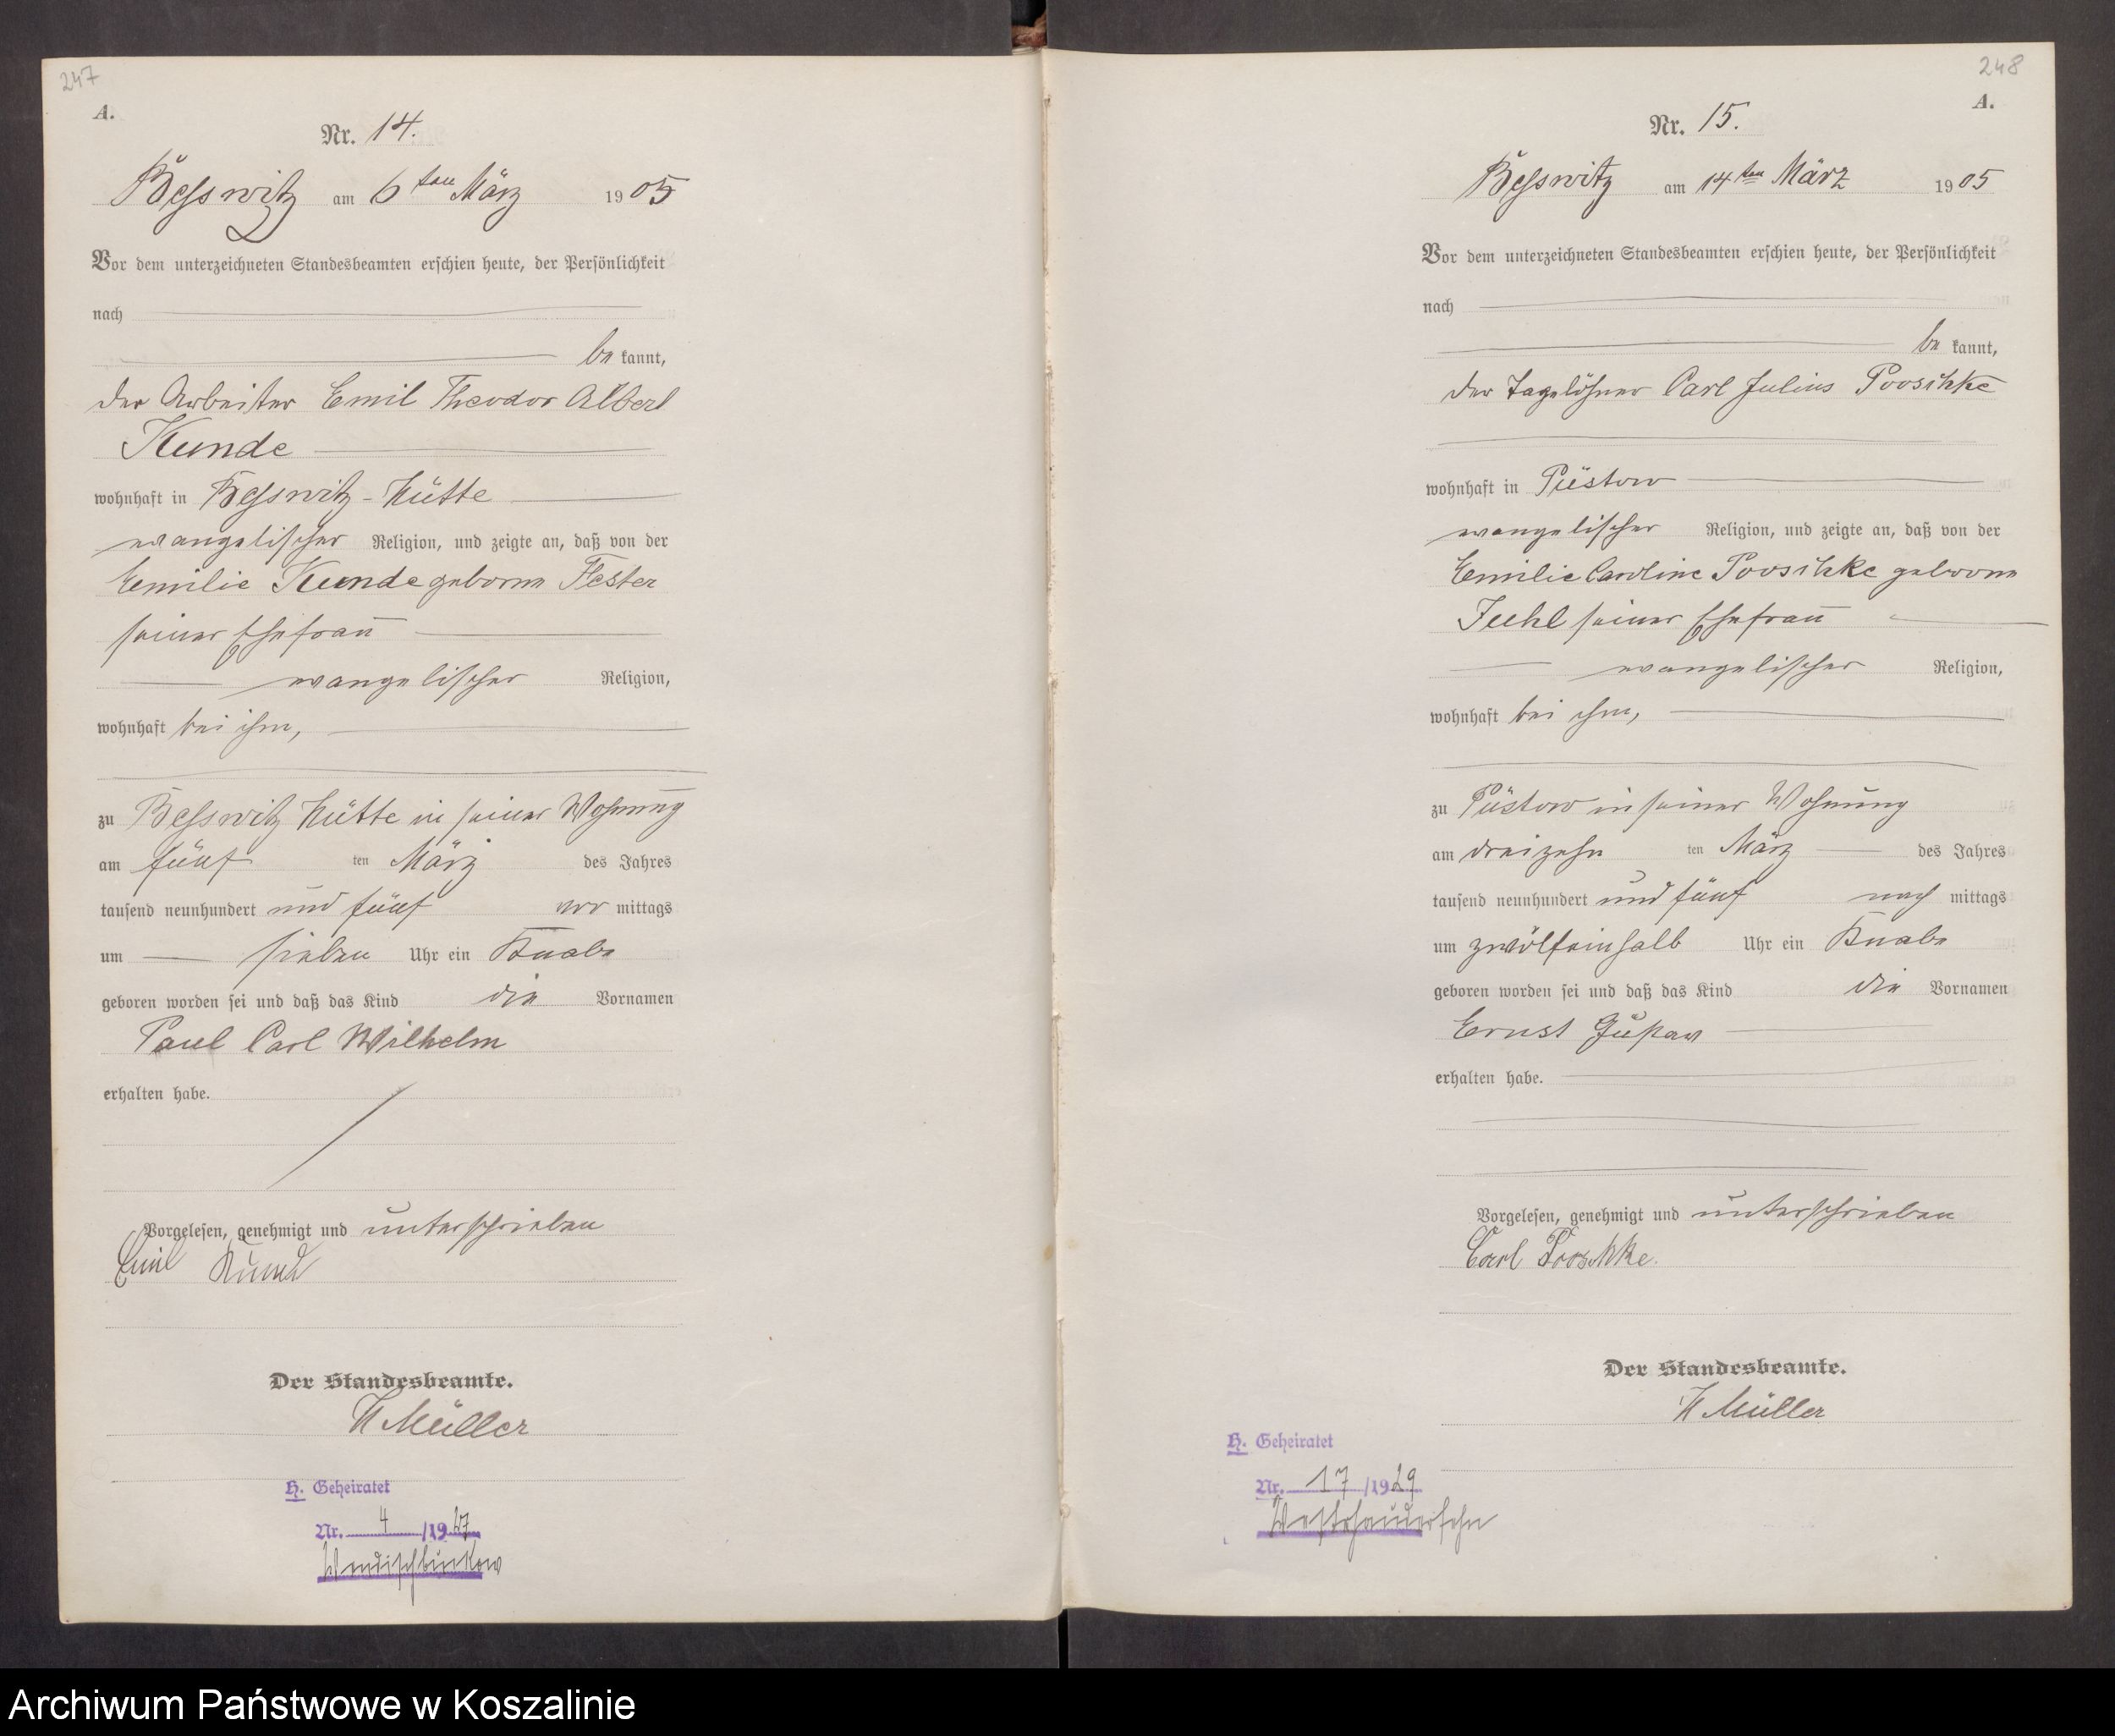 247
A.
Nr. 14.
Besswitz am 6ten März 1905
Vor dem unterzeichneten Standesbeamten erschien heute, der Persönlichkeit
nach
be kannt,
der Arbeiter Emil Theodor Albert
Kunde
wohnhaft in Besswitz-Hütte
evangelischer Religion, und zeigte an, daß von der
Emilie Kunde geborne Fester
seiner Ehefrau
evangelischer Religion,
wohnhaft bei ihm,
zu Besswitz Hütte in seiner Wohnung
am fünf ten März des Jahres
tausend neunhundert und fünf vor mittags
um sieben Uhr ein Knabe
geboren worden sei und daß das Kind die Vornamen
Paul Carl Wilhelm
erhalten habe.
Vorgelesen, genehmigt und unterschrieben
Emil Kunde
Der Standesbeamte.
H Müller
H. Geheiratet
Nr. 4 /1927
Wendischbuckow
248
A.
Nr. 15.
Besswitz am 14ten März 1905
Vor dem unterzeichneten Standesbeamten erschien heute, der Persönlichkeit
nach
be kannt,
der Tagelöhner Carl Julius
wohnhaft in Püstow
evangelischer Religion, und zeigte an, daß von der
Emilie Caroline geborne
seiner Ehefrau
evangelischer Religion,
wohnhaft bei ihm,
zu Püstow in seiner Wohnung
am dreizehn ten März des Jahres
tausend neunhundert und fünf nach mittags
um zwölfeinhalb Uhr ein Knabe
geboren worden sei und daß das Kind die Vornamen
Ernst Gustav
erhalten habe.
Vorgelesen, genehmigt und unterschrieben
Carl
Der Standesbeamte.
H Müller
H. Geheiratet
Nr. 17 /1929
Westrhauderfehn
Archiwum Państwowe w Koszalinie